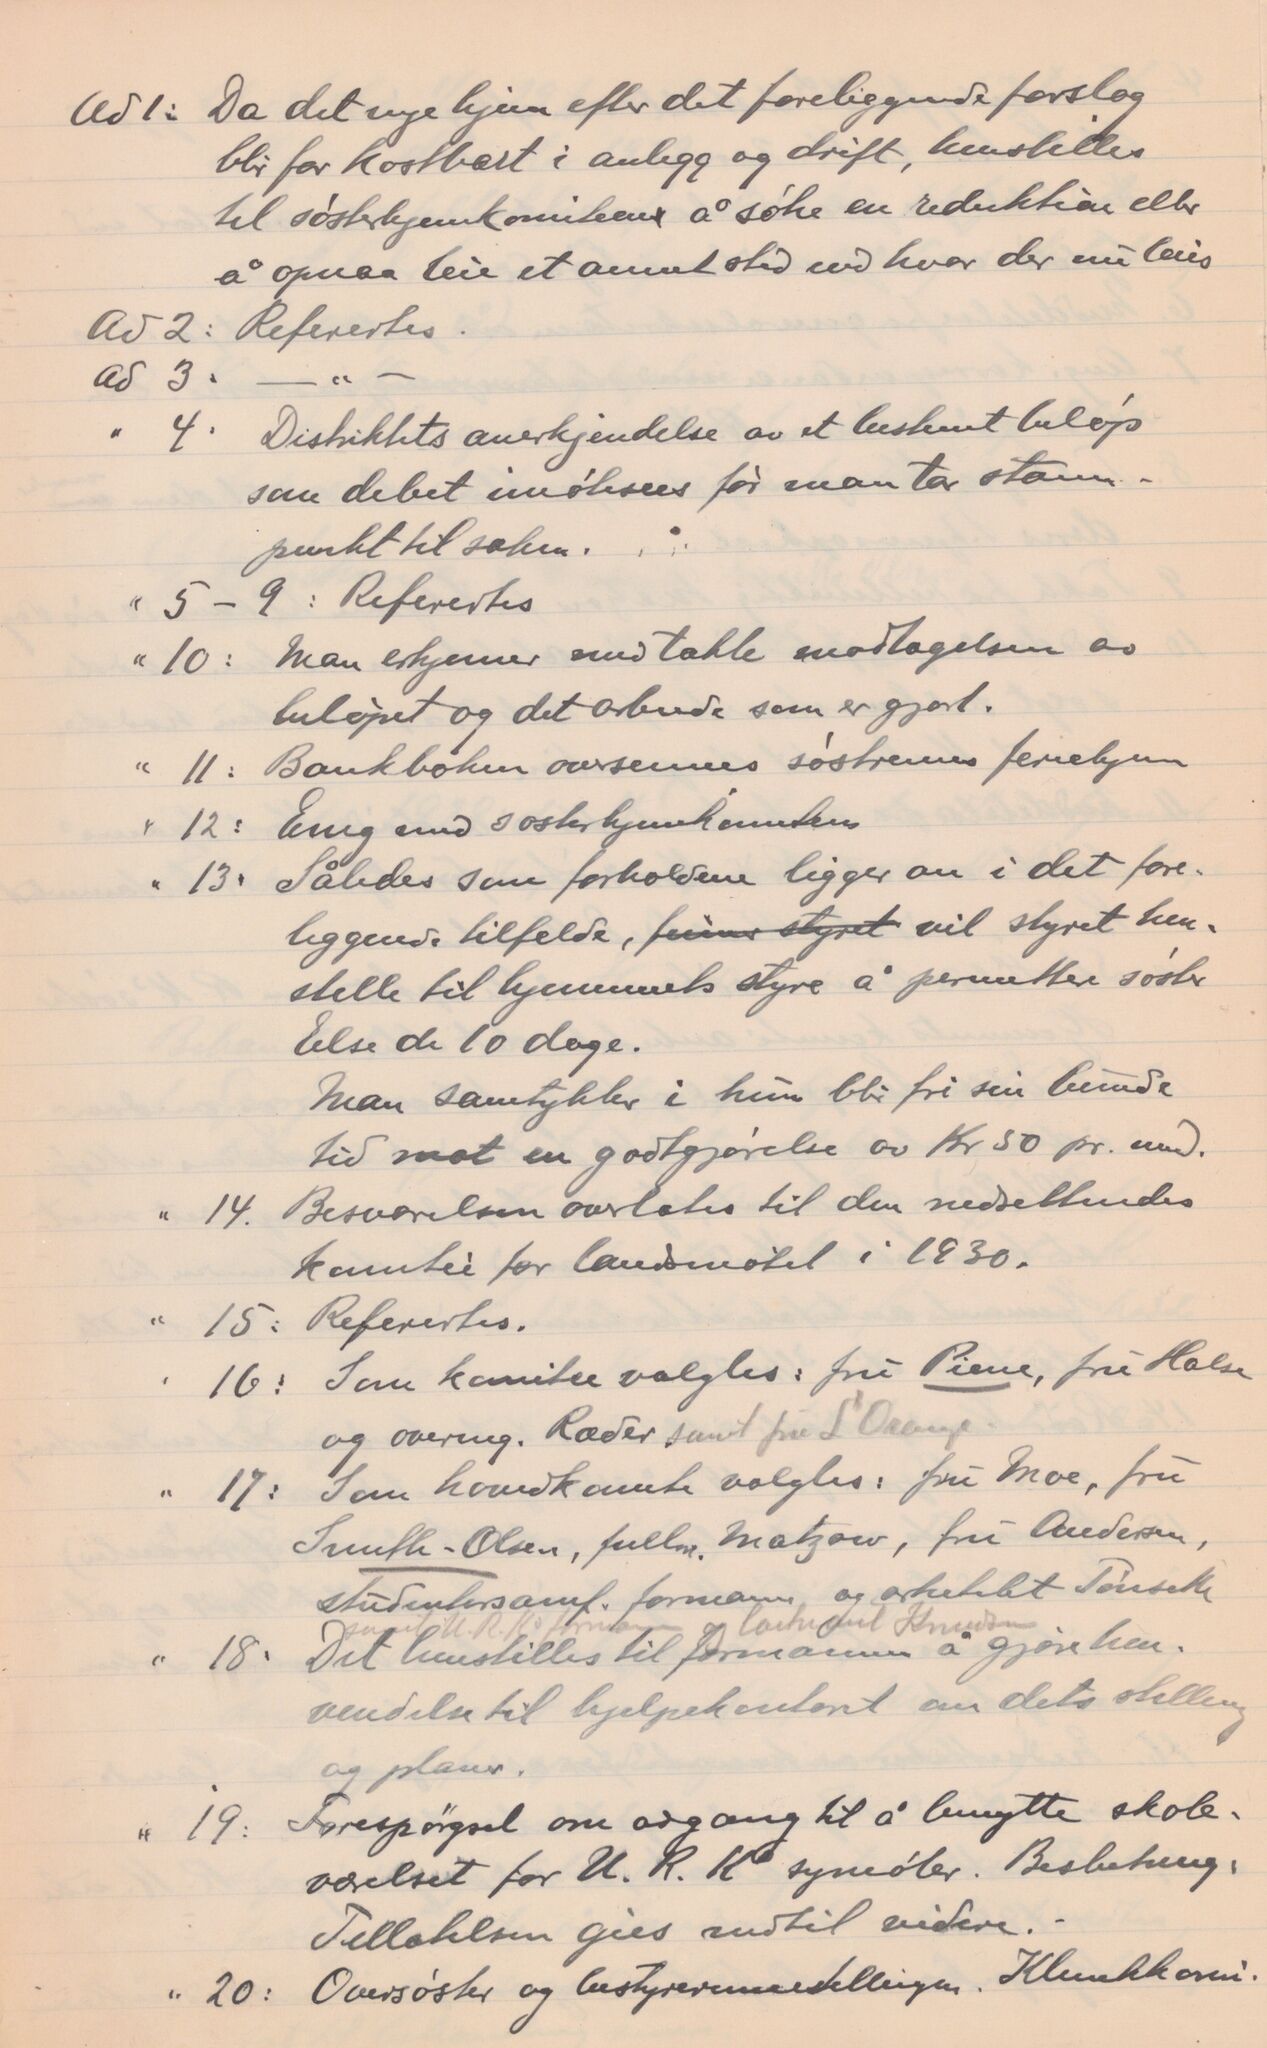 Ad 1: Da det nye hjem efter det foreliggende forslag
blir for kostbart i anlegg og drift, henstilles
til søsterhjemkomiteen å søke en reduktion eller
å opnaa leie et annet sted end hvor der nu leies
Ad 2: Refereres.
Ad 3. — " —
" 4. Distriktets anerkjendelse av et bestemt beløp
som debet imøtesees før man tar stann-
punkt til saken.
" 5 – 9: Refereres
" 10: Man erkjenner med takk modtagelsen av
beløpet og det arbeide som er gjort.
" 11: Bankboken oversennes søstrenes feriehjem
" 12: Enig med søsterhjemkomiteen
" 13. Således som forholdene ligger an i det fore-
liggende tilfelde, finner styret vil styret hen-
stille til hjemmets styre å permittere søster
Else de 10 dage.
Man samtykker i hun blir fri sin bunde
tid mot en godtgjørelse av Kr 50 pr. mnd.
" 14. Besvarelsen overlates til den nedsettendes
komitée for landsmøtet i 1930.
" 15: Refereres.
" 16: Som komitee valgtes: fru Piene, fru Halse
og overing. Ræder samt fru L'Orange.
" 17: Som hovedkomite valgtes: fru Moe, fru
Smith-Olsen, fullm. Matzow, fru Andersen,
studentersamf. formann og arkitekt Tønseth
samt U.R.Ks formann og løitnant Knudsen
" 18. Det henstilles til formannen å gjøre hen-
vendelse til hjelpekontoret om dets stilling
og planer.
" 19: Forespørgsel om adgang til å benytte skole-
værelset for U. R. Ks symøter. Beslutning:
Tillatelsen gies indtil videre. -
" 20: Oversøster og bestyrerinnestillingen. Klinikkomi-